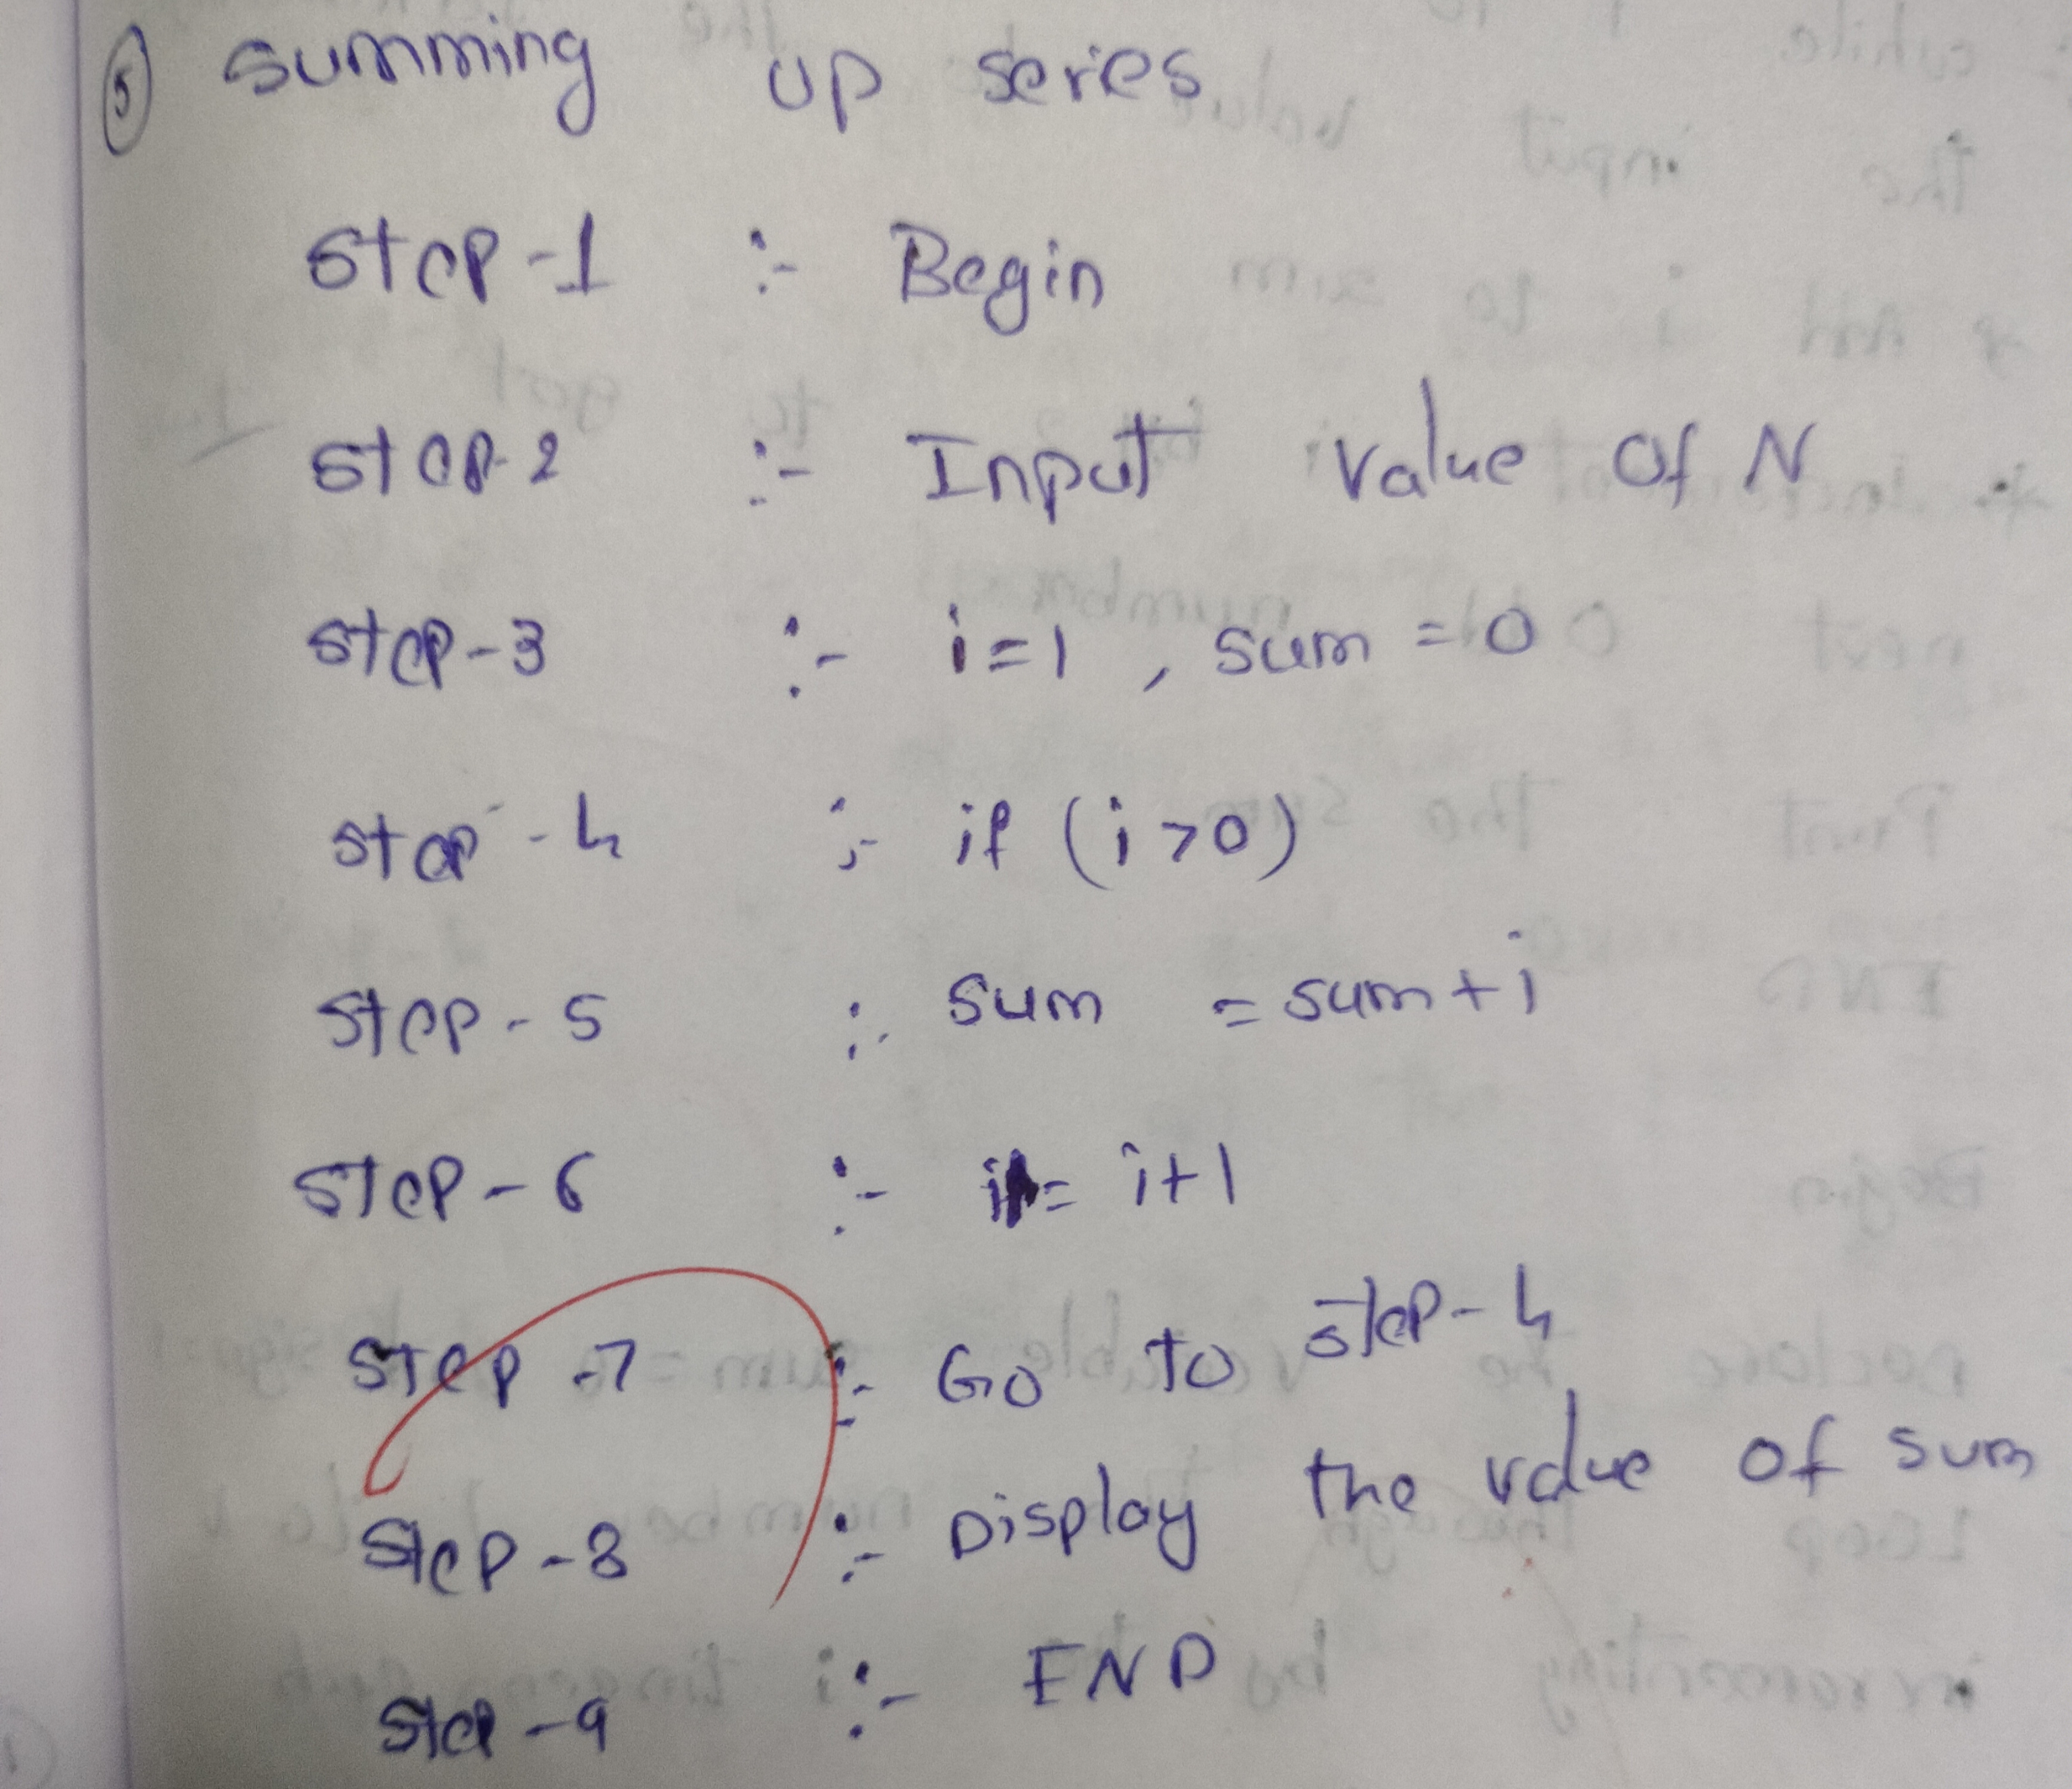 5 Summing up series
Step-1 :- Begin
Step-2 :- Input value of N
Step-3 :- i=1, sum=0
Step-4 :- if (i>0)
Step-5 :- sum = sum+i
Step-6 :- i = i+1
Step-7 :- Go to step-4
Step-8 :- Display the value of sum
Step-9 :- END